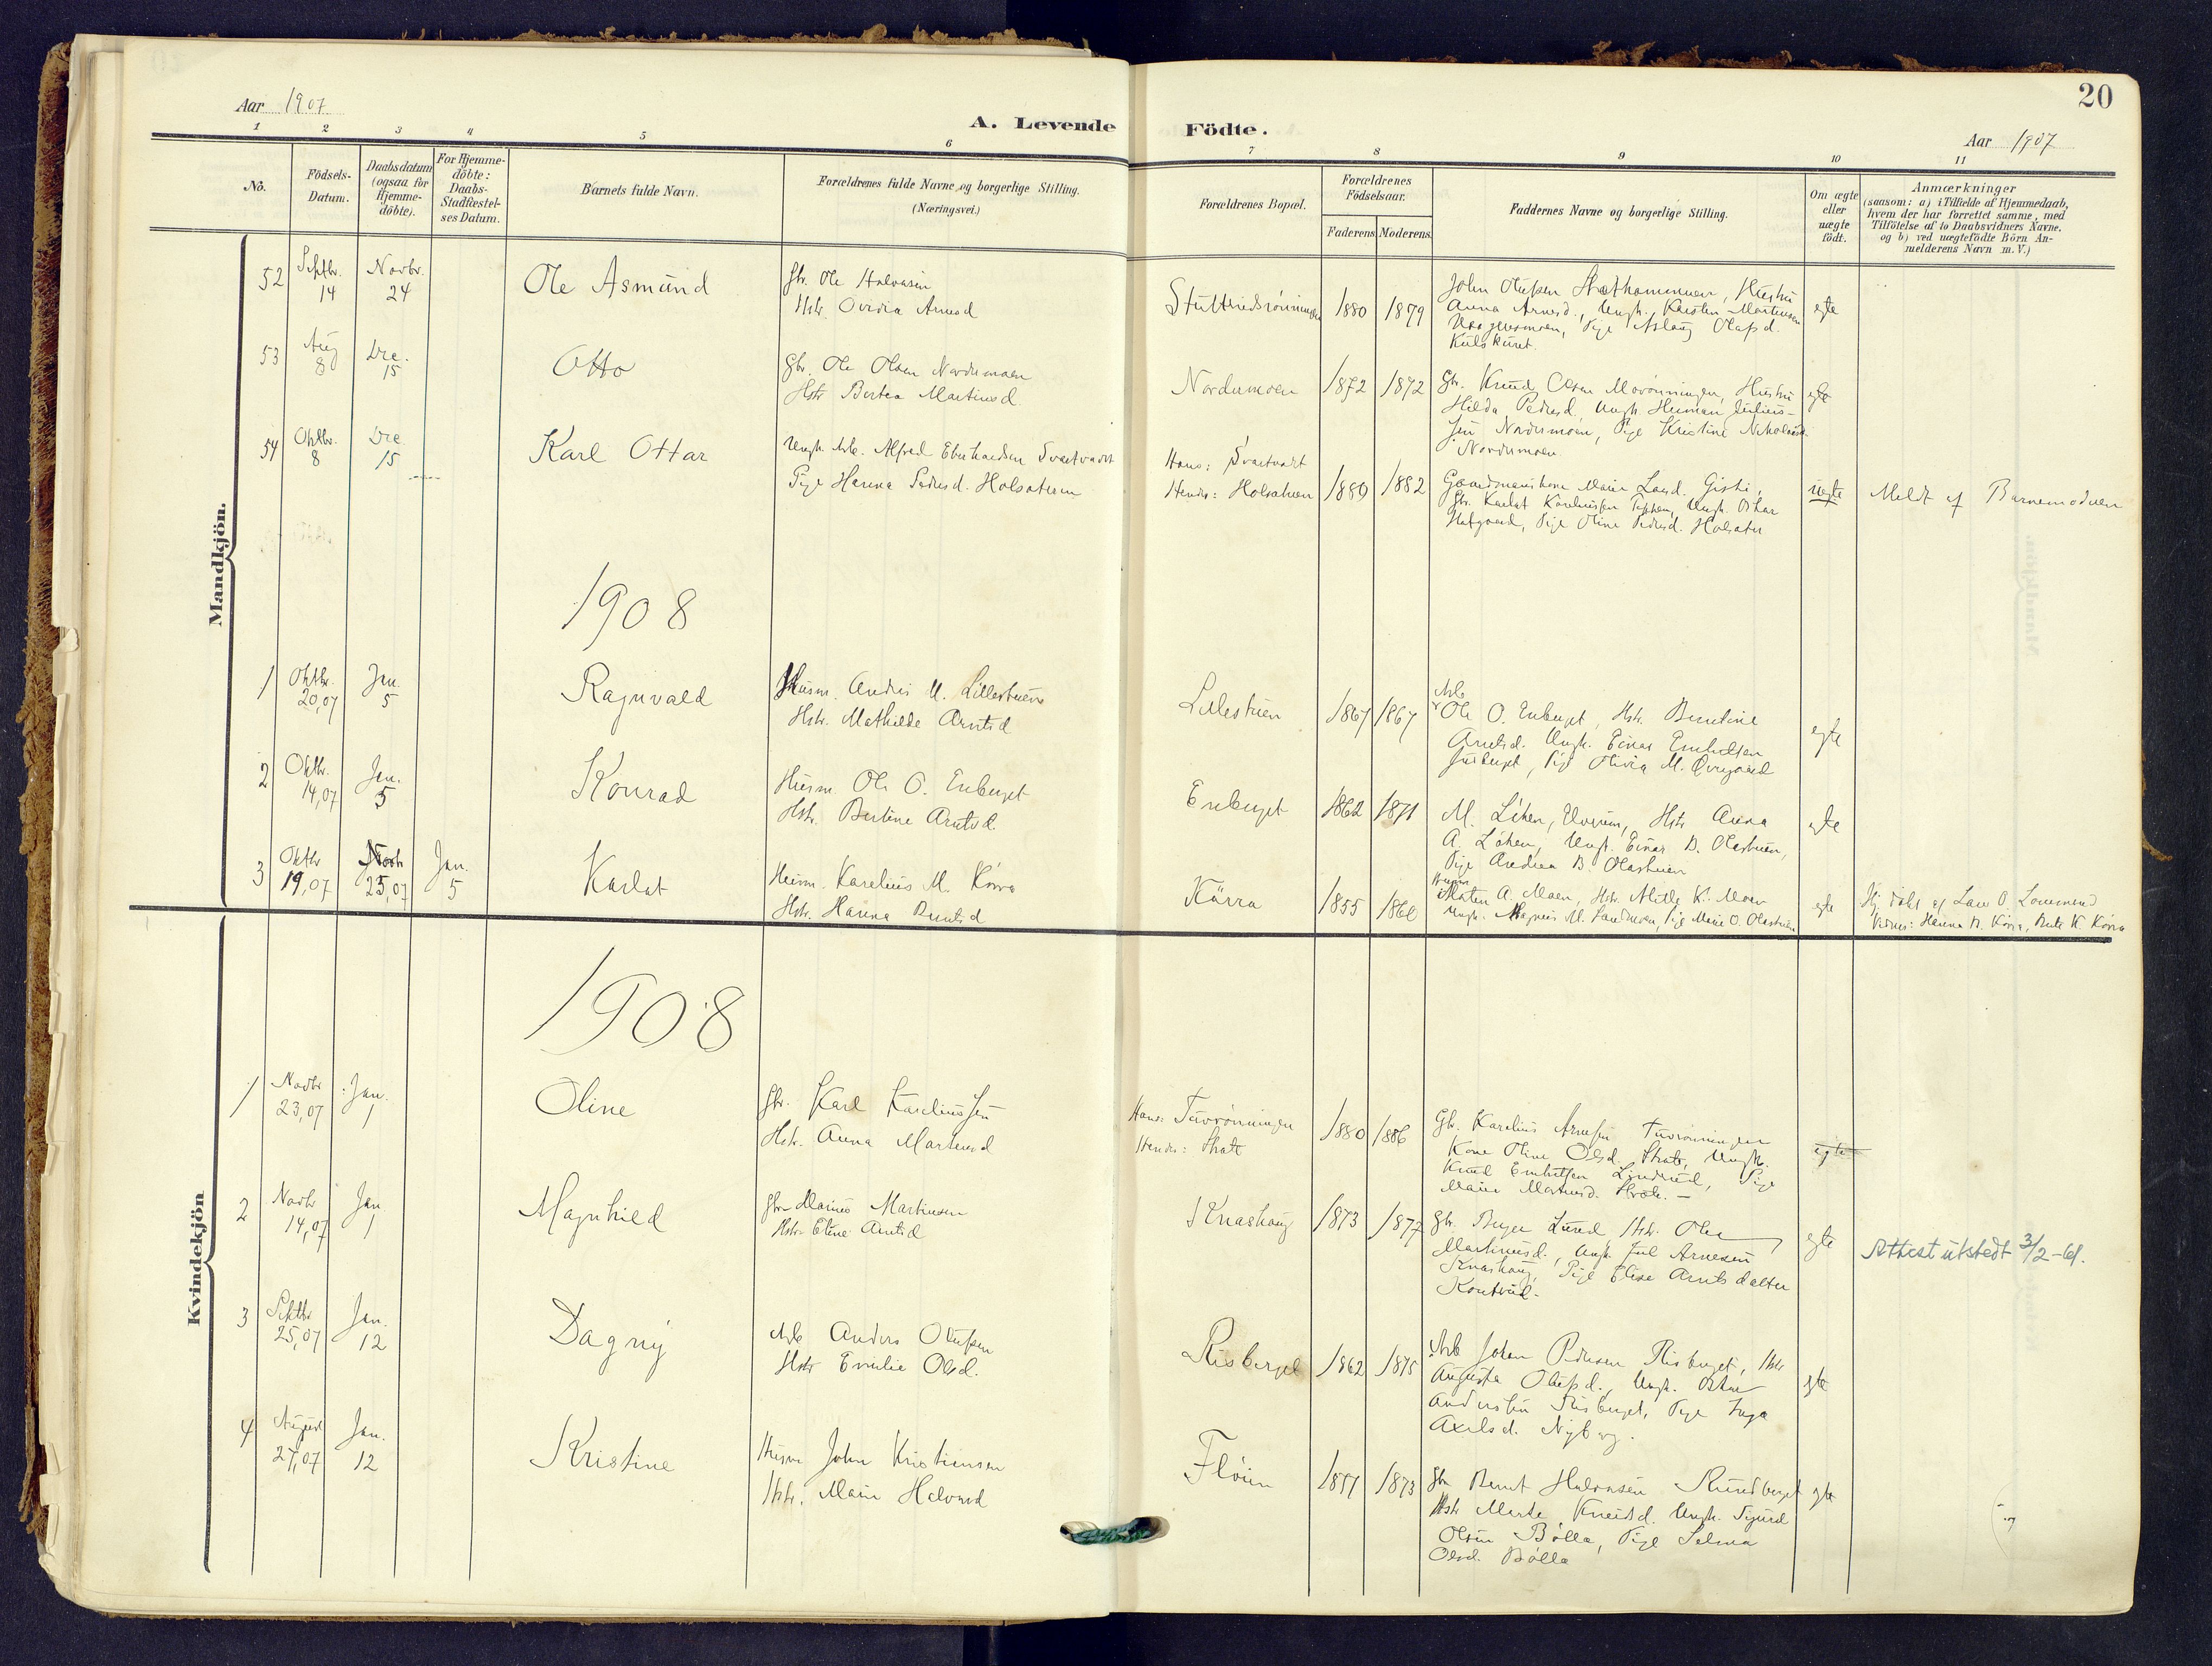 Aar 1907
A. Levende Födte.
20
Aar 1907
1 2 3 4 5 6 7 8 9 10 11
No.
Födsels-
Datum.
Daabsdatum
(ogsaa for
Hjemme-
döbte).
For Hjemme-
döbte:
Daabs-
Stadfæstel-
ses Datum.
Barnets fulde Navn.
Forældrenes fulde Navne og borgerlige Stilling.
(Næringsvei.)
Forældrenes Bopæl.
Forældrenes
Födselsaar.
Faderens Moderens.
Faddernes Navne og borgerlige Stilling.
Om ægte
eller
uægte
födt.
Anmærkninger
(saasom: a) i Tilfælde af Hjemmedaab,
hvem der har forrettet samme, med
Tilföielse af to Daabsvidners Navne.
og b) ved uægtefödte Börn An-
melderens Navn m. V.)
Mandkjön.
52 Septbr. 14 Novbr. 24 Ole Asmund
Gbr. Ole Halvorsen
Hstr. Ovidia Arnesd
1880 1879
John Olufsen Hustru
Anna Arnesd., Ungk. Karsten Martinsen
Pige Aslaug Olafsd.
egte
53 Aug 8 Dec. 15 Otto
Gbr. Ole Olsen Nordumoen
Hstr Bertea Martinsd.
Nordumoen 1872 1872
Gbr. Knud Olsen Moronningen, Hustru
Hilda Pedersd. Ungk. Herman Julius-
sen Nordumoen, Pige Kristine
Nordumoen
egte
54 Oktbr. 8 Dec 15 Karl Ottar
Ungk. Arb. Alfred Eberhardsen Svartvadt
Pige Hanna Pedersd. Holsatuen
Hans: Svartvadt
Hendes: Holsatuen 1880 1882
Gaardmandskone Marie Larsd.
Gbr. Karlot Karelinssen Ungk. Oskar
Pige Oline Pedersd. Holsatu
uegte
Meldt af Barnemoderen
1908
1 Oktbr. 20,07 Jan. 5 Ragnvald
Husm. Andres M. Lillestuen
Hstr. Mathilde Arntsd
Lillestuen 1867 1867
Arb
Ole O. Enberget, Hstr. Berntine
Arntsd. Ungk. Einar Embretsen
Pige Olivia M. Øvergaard
egte
2 Oktbr. 14,07 Jan. 5 Konrad
Husm. Ole O. Enberget
Hstr. Bertine Arntsd.
Enberget 1862 1871
M. Löken, Hstr Anna
A. Löken, Ungk. Einar B. Olastuen,
Pige Andrea B. Olastuen
egte
3 Oktbr 19,07 Novbr 25,07 Jan. 5 Karlot
Husm. Karelius M. Körra
Hstr. Hanna Berntsd
Körra 1855 1860
Husm.
Maten A. Moen, Hstr. Mille K. Moen
Ungk. Magnus M. Sandmoen, Pige Marie O. Olastuen
egte
Hj. döbt af Lars O. Lommerud
Vidner: Hanna B. Körra, Berte K. Körra
Kvindekjön
1908
1 Novbr 23,07 Jan. 1 Oline
Gbr. Karl Kareliussen
Hstr. Anna Martensd
Hans: Tuvrönningen
Hendes: Strate 1880 1886
Gbr. Karelius Arnesen Tuvrönningen
Kone Oline Olsd. Strate, Ungk.
Knud Embretsen Linderud, Pige
Marie Martensd. Strate. —
egte
2 Novbr 14,07 Jan 1 Magnhild
Gbr Marius Martinsen
Hstr. Eline Arntsd
Knashaug 1873 1877
Gbr. Birger Lund Hstr. Olea
Martinusd., Ungk. Juul Arnesen
Knashaug, Pige Elise Arntsdatter
Konterud.
egte
Attest utstedt 3/2-61.
3 Septbr 25,07 Jan. 12 Dagny
Arb Anders Olufsen
Hstr Emilie Olsd.
Risberget 1862 1875
Arb Johan Pedersen Risberget, Hstr
Augusta Olufsd., Ungk. Oskar
Anderssen Risberget, Pige Inga
Axelsd. Nyberg.
egte
4 August 27,07 Jan. 12 Kristine
Husm John Kristiansen
Hstr. Marie Halvorsd
Flöien 1871 1873
Gbr Bernt Halvorsen Rundberget
Hstr Marte Knudsd. Ungk. Sigurd
Olsen Bölla, Pige Selma
Olsd. Bölla
egte